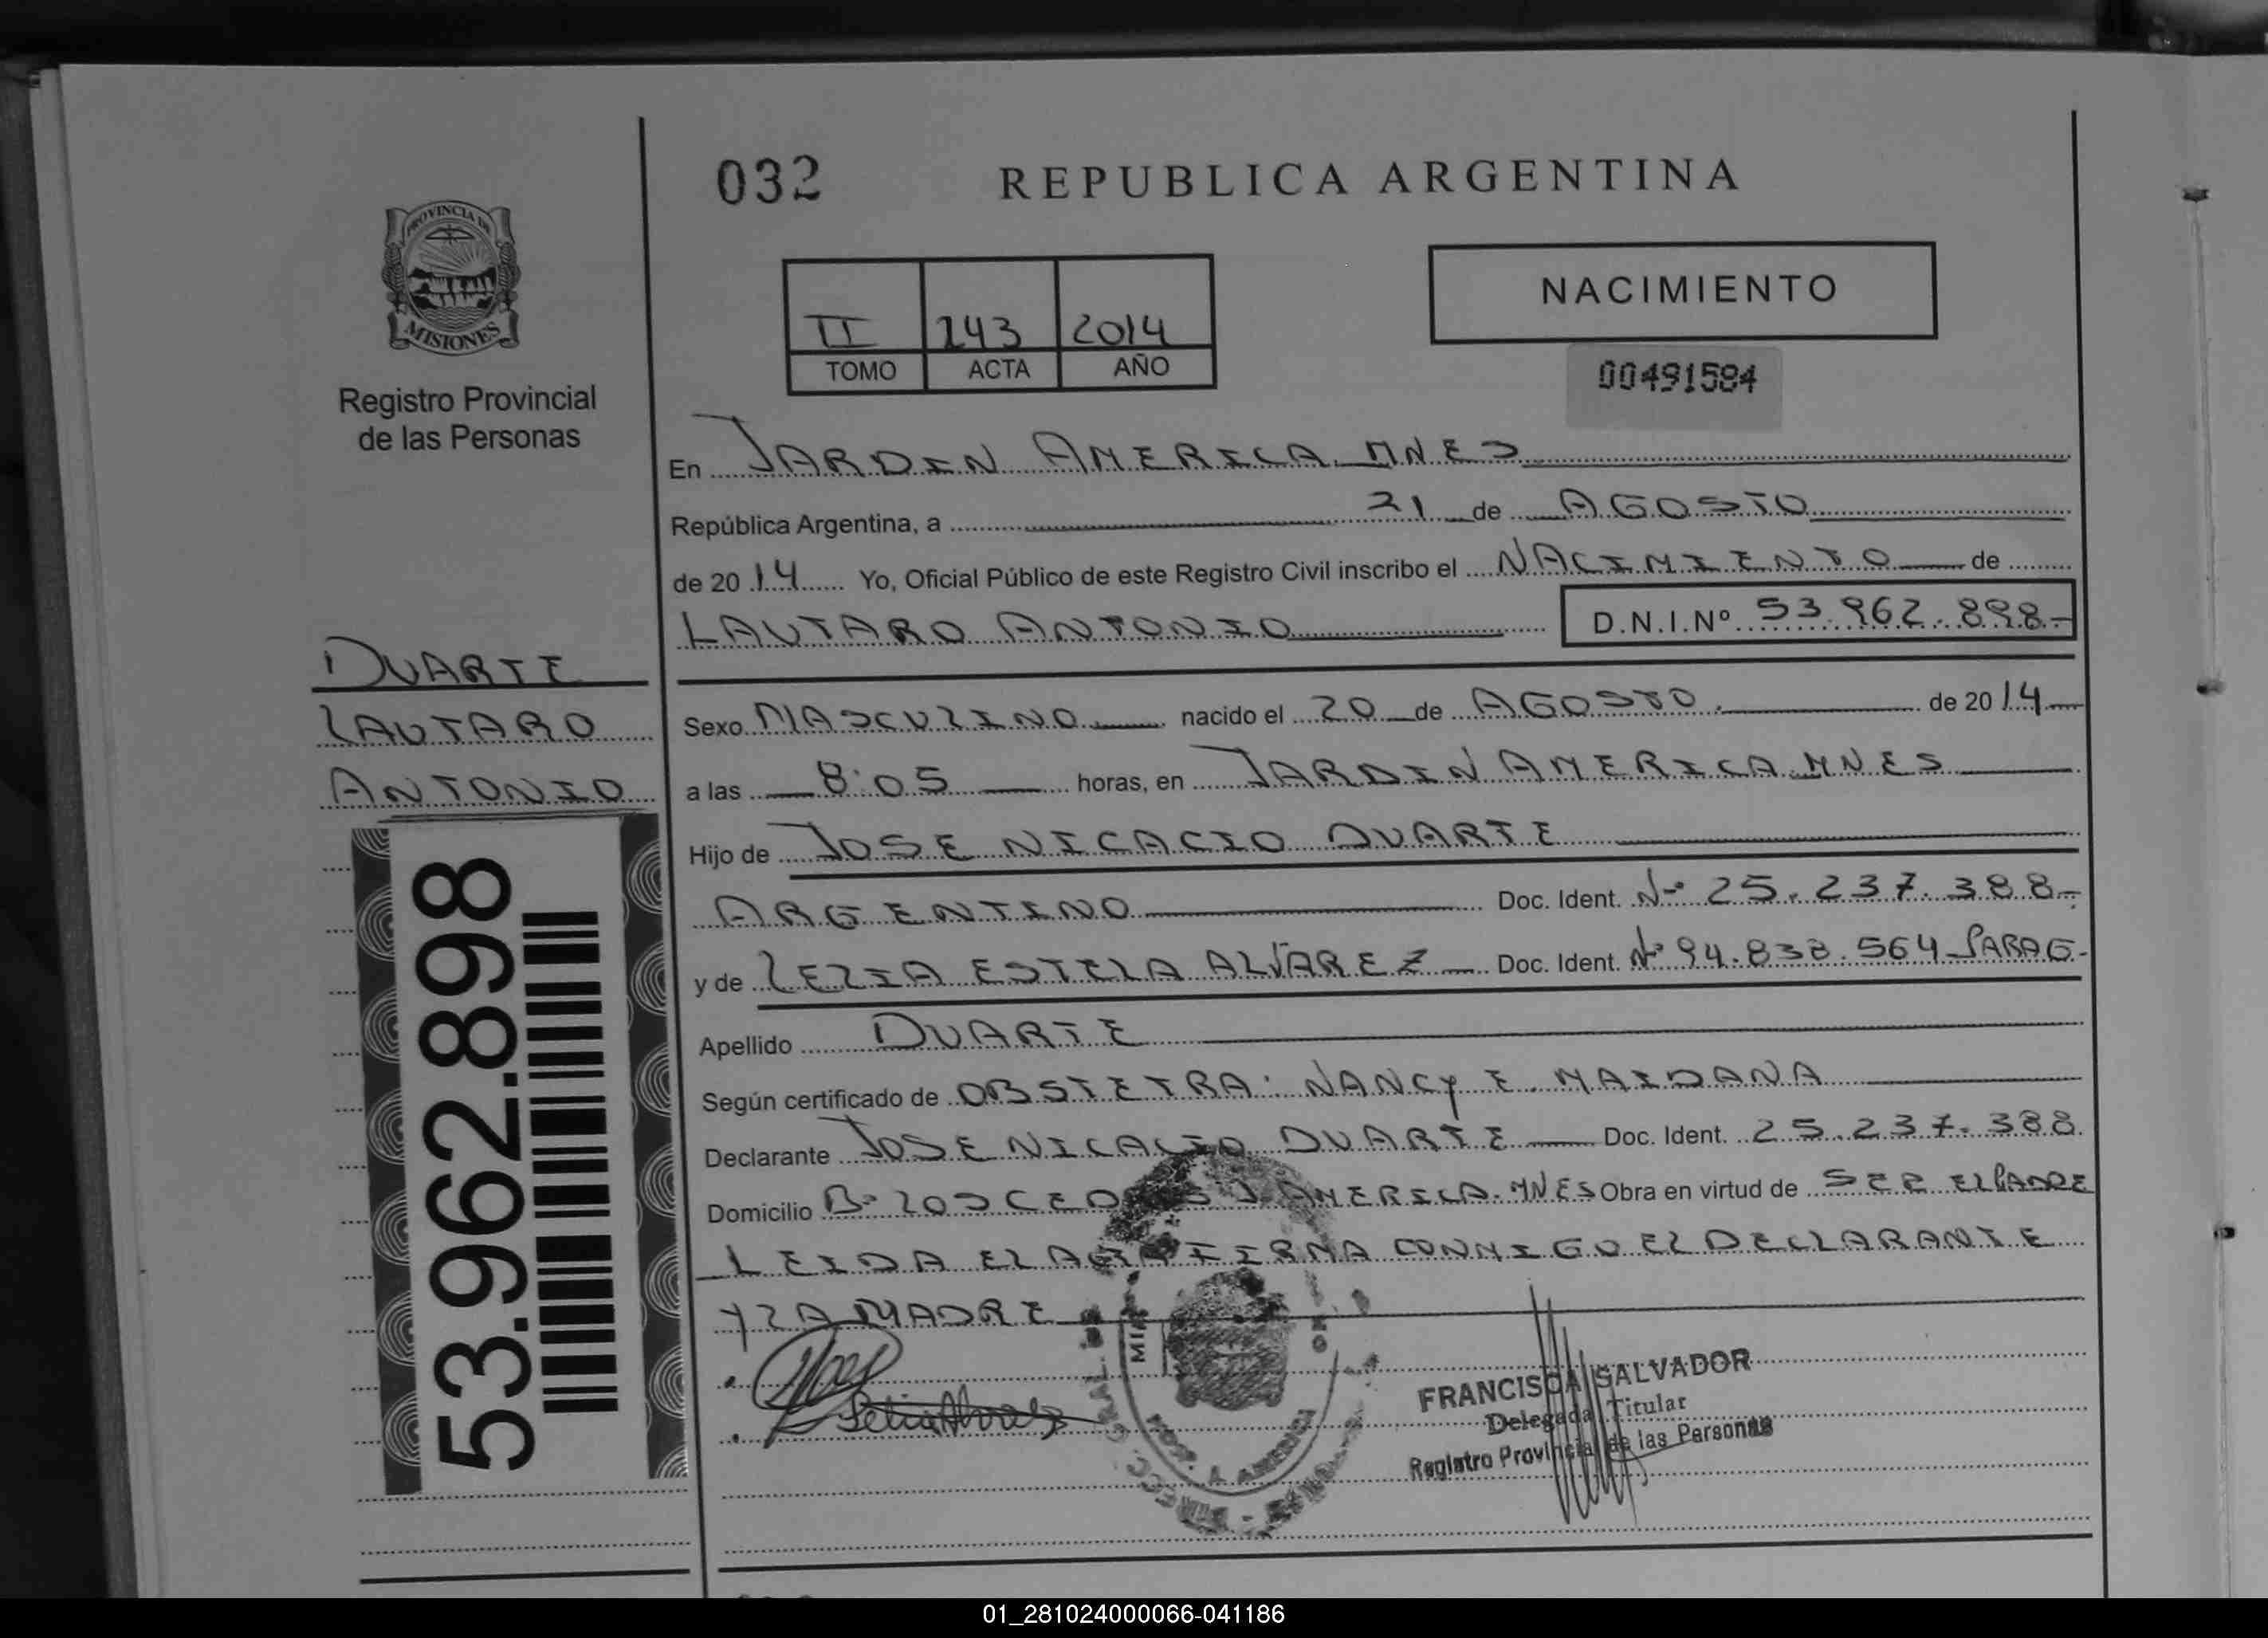 032
REPUBLICA ARGENTINA
PROVINCIA DE
MISIONES
Registro Provincial
de las Personas
II 243 2014
TOMO ACTA AÑO
NACIMIENTO
00491584
En JARDIN AMERICA MNES
República Argentina, a 21 de AGOSTO
de 2014 Yo, Oficial Público de este Registro Civil inscribo el NACIMIENTO de
LAUTARO ANTONIO D.N.I.Nº 53.962.898-
DUARTE
LAUTARO
ANTONIO
53.962.898
Sexo MASCULINO nacido el 20 de AGOSTO de 2014
a las 8:05 horas, en JARDIN AMERICA MNES
Hijo de JOSE NICACIO DUARTE
ARGENTINO Doc. Ident. Nº 25.237.388-
y de LELIA ESTELA ALVAREZ Doc. Ident. Nº 94.838.564 PARAG-
Apellido DUARTE
Según certificado de OBSTETRA: NANCY E. MAIDANA
Declarante JOSE NICACIO DUARTE Doc. Ident. 25.237.388
Domicilio Bº LOS CEDROS J. AMERICA. MNES Obra en virtud de SER EL PADRE
LEIDA EL ACTA FIRMA CONMIGO EL DECLARANTE
Y LA MADRE
Lelia Alvarez
FRANCISCA SALVADOR
Delegada Titular
Registro Provincial de las Personas
01_281024000066-041186